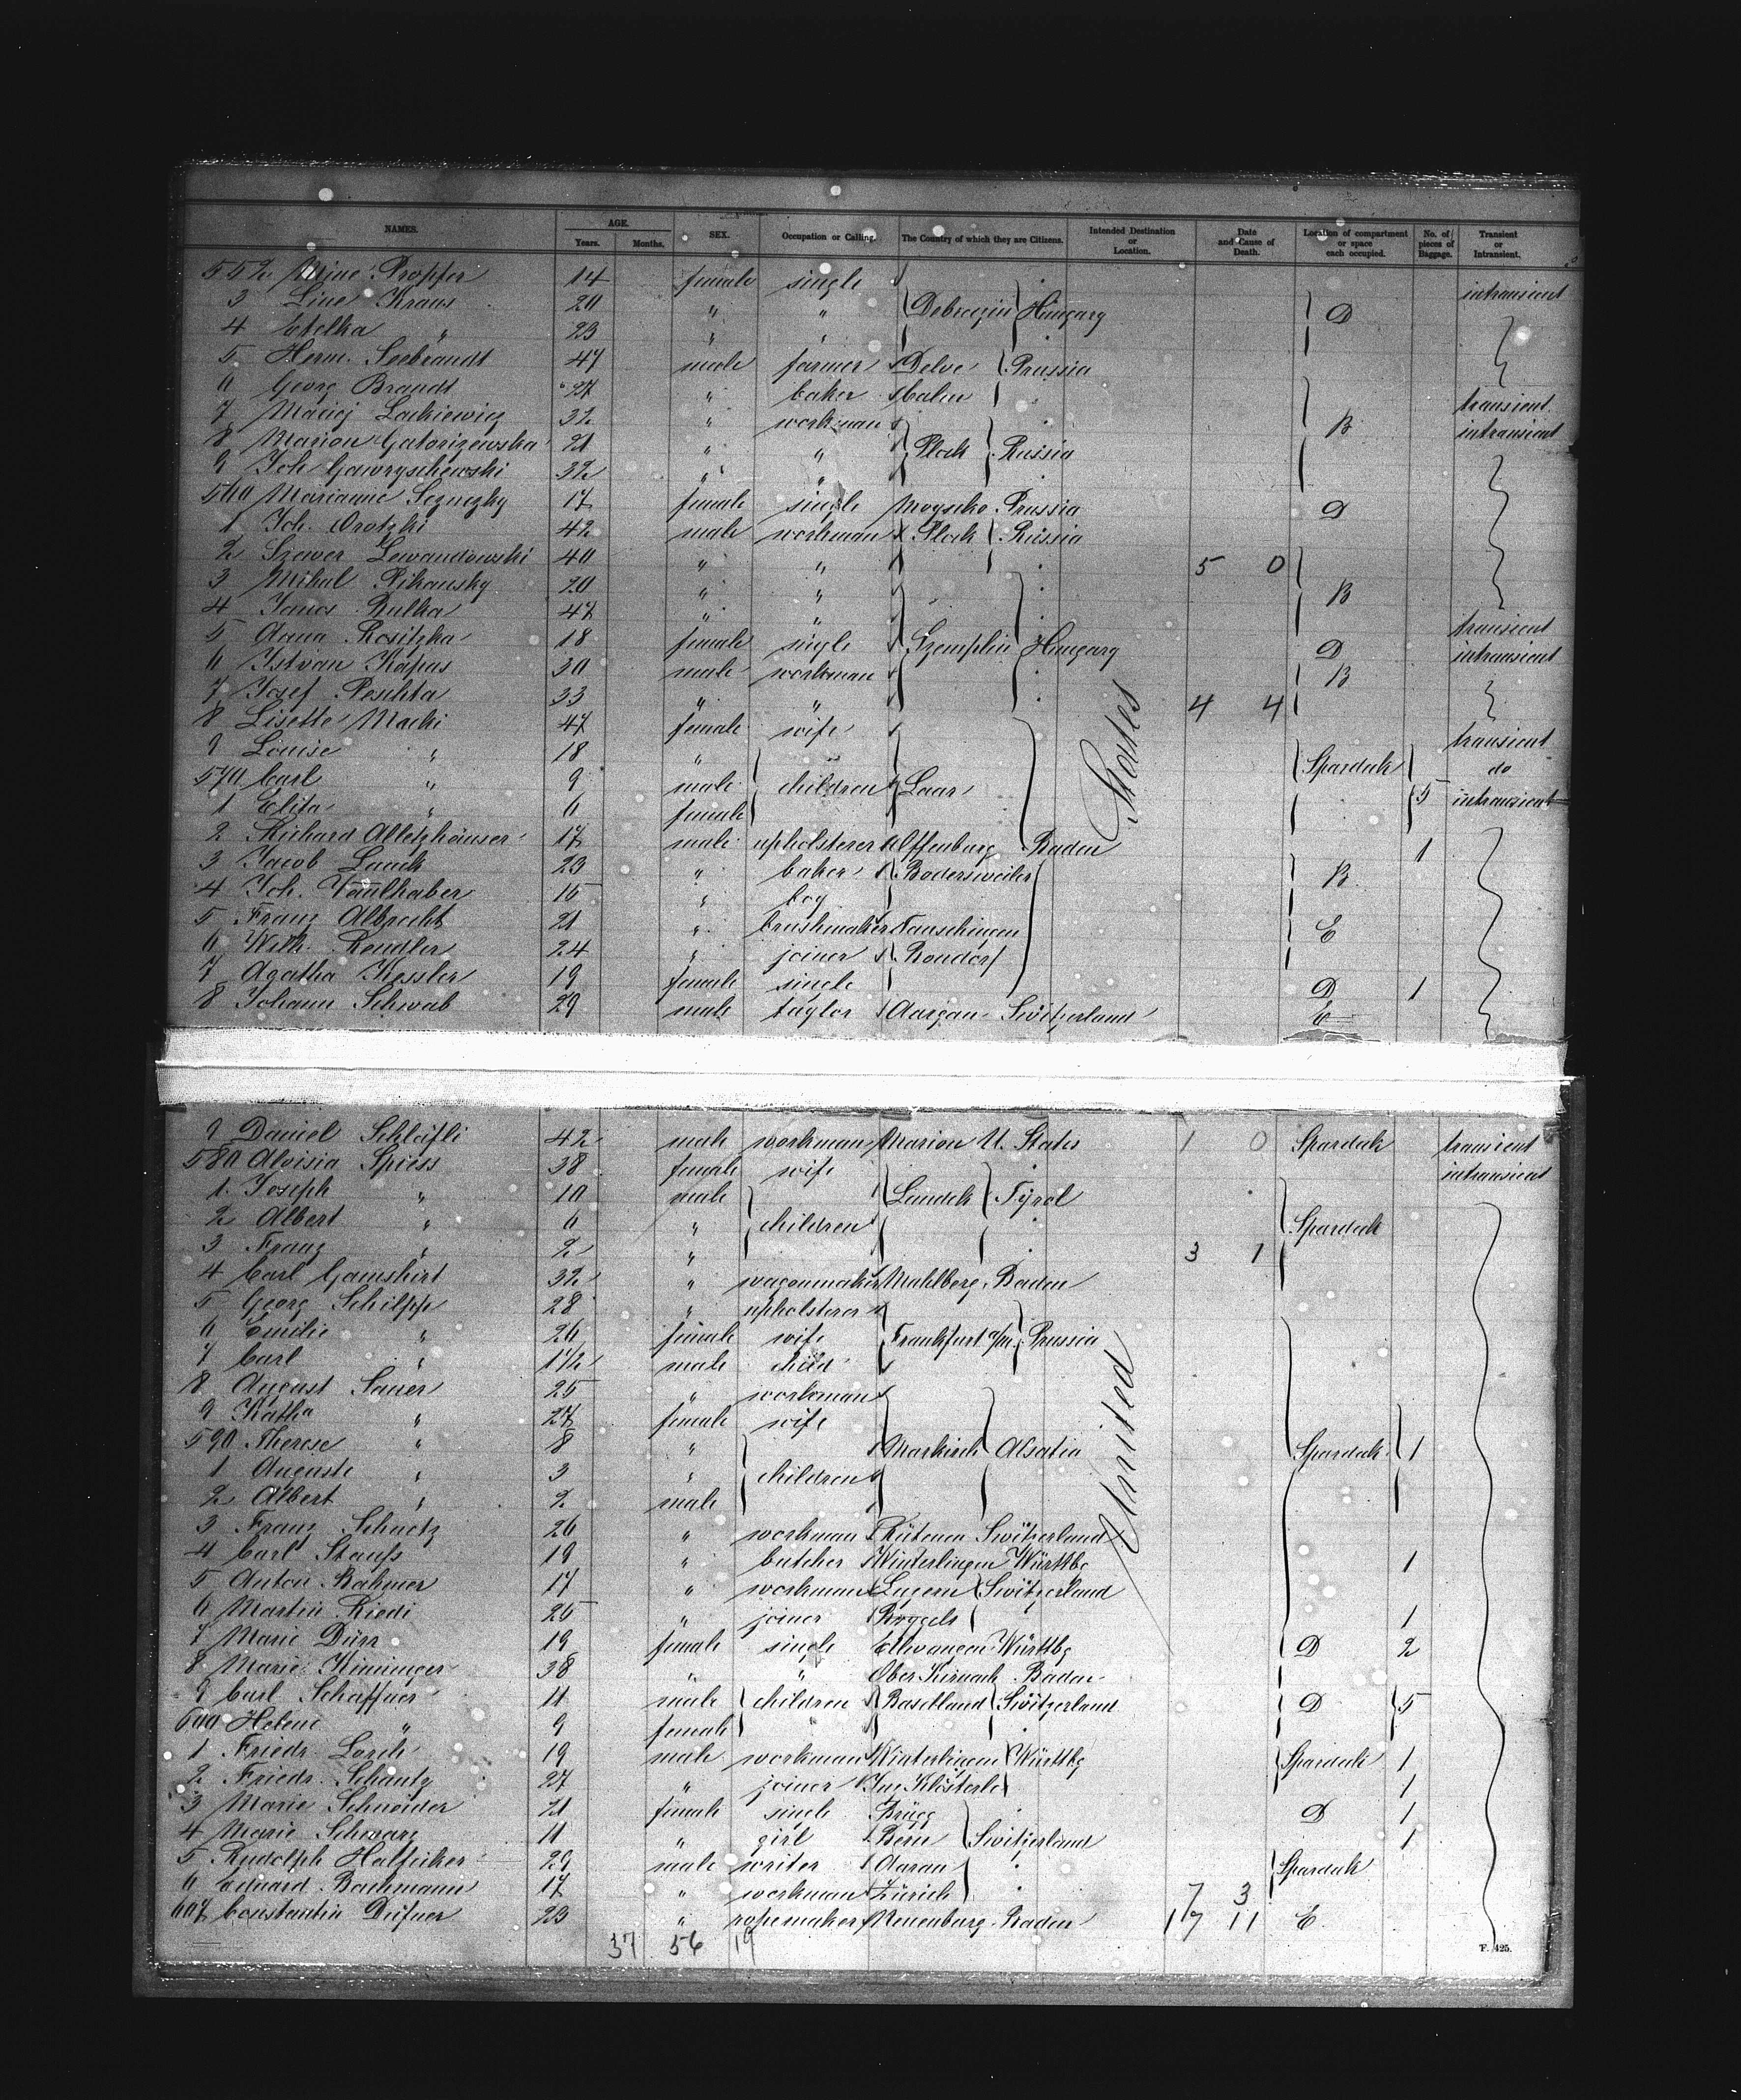 NAMES. AGE. Years. Months. SEX. Occupation or Calling. The Country of which they are Citizens. Intended Destination or Location. Date and Cause of Death. Location of compartment or space each occupied. No. of pieces of Baggage. Transient or Intransient.
552 Mine Propper 14 female single intransient
3 Line Kraus 20 " " Debreczin Hungary D
4 Etelka " 23 " "
5 Herm. Seebrandt 47 male farmer Delve Prussia
6 Georg Brandt 27 " baker Calen transient
7 Maciej Lackiewicz 32 " workman B intransient
8 Marion Gatorizewska 21 " " Plock Russia
9 Joh Gawryschewski 32 " "
560 Marianne 17 female single Prussia D
1 Joh. Orotzki 42 male workman Plock Russia
2 Szawer Lewandowski 40 " " 5 0
3 Mihal Pikansky 20 " " B
4 Janos Bulka 47 " " transient
5 Anna Rositzka 18 female single Szemplin Hungary D intransient
6 Istvan Kapus 30 male workman B
7 Josef Poschta 33 " " 4 4
8 Lisette Macki 47 female wife transient
9 Louise " 18 " Spardeck do
570 Carl " 9 male children Laar 5 intransient
1 Elita " 6 female
2 Richard Alletzhäuser 17 male upholsterer Offenburg Baden 1
3 Jacob Laack 23 " baker Bodersweiler B
4 Joh. Faulhaber 15 " boy
5 Franz Albrecht 21 " brushmaker E
6 Wilh. Rendler 24 " joiner Rondorf
7 Agatha Kessler 19 female single D 1
8 Johann Schwab 29 male taylor Aargau Switzerland E
States
9 Daniel Schläfli 42 male workman Marion U. States 1 0 Spardeck transient
580 Aloisia Spiess 38 female wife intransient
1 Joseph " 10 male Landek Tyrol
2 Albert " 6 " children Spardeck
3 Franz " 2 " 3 1
4 Carl Gamshirt 32 " wagonmaker Mahlberg Baden
5 Georg Schilpp 28 " upholsterer
6 Emilie " 26 female wife Frankfurt a/m Prussia
7 Carl " 1 1/2 male child
8 August Sauer 25 " workman
9 Katha " 27 female wife
590 Therese " 8 " Markirch Alsatia Spardeck 1
1 Auguste " 3 " children
2 Albert " 2 male
3 Franz Schuetz 26 " workman Rütenen Switzerland
4 Carl Stauss 19 " butcher Winterlingen Württbg 1
5 Anton Bahmer 17 " workman Luzern Switzerland
6 Martin Riedi 25 " joiner 1
7 Marie Dürr 19 female single Ellwangen Württbg D 2
8 Marie Kieninger 38 " " Ober Kirnach Baden
9 Carl Schaffner 11 male children Baselland Switzerland D 5
600 Helene " 9 female "
1 Friedr. Lorch 19 male workman Winterlingen Württbg Spardeck 1
2 Friedr. Schantz 27 " joiner Im Klösterle 1
3 Marie Schneider 21 female single Brügg D 1
4 Marie Schwarz 11 " girl Bern Switzerland 1
5 Rudolph Halfiker 29 male writer Aarau Spardeck
6 Eduard Bachmann 17 " workman Zürich 7 3
607 Constantin Dufner 23 " ropemaker Neuenburg Baden 17 11 E
United
37 56 19
F. 425.